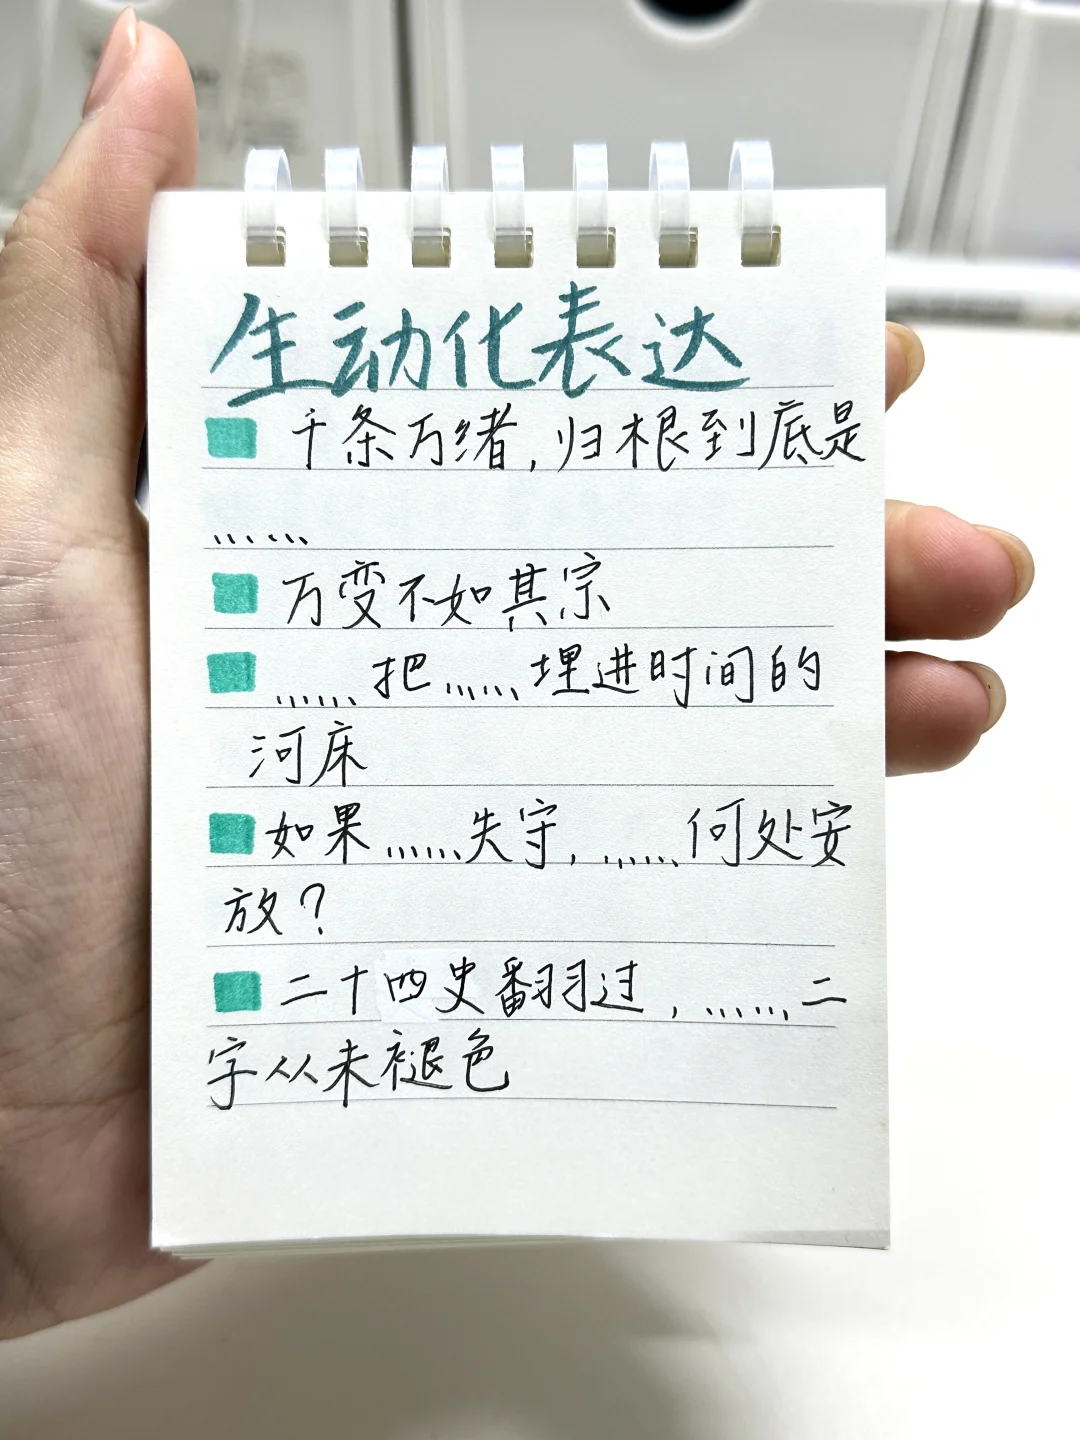 生动化表达
千条万绪,归根到底是
……
万变不如其宗
……把……埋进时间的
河床
如果……失守,……何处安
放?
二十四史翻过,……二
字从未褪色